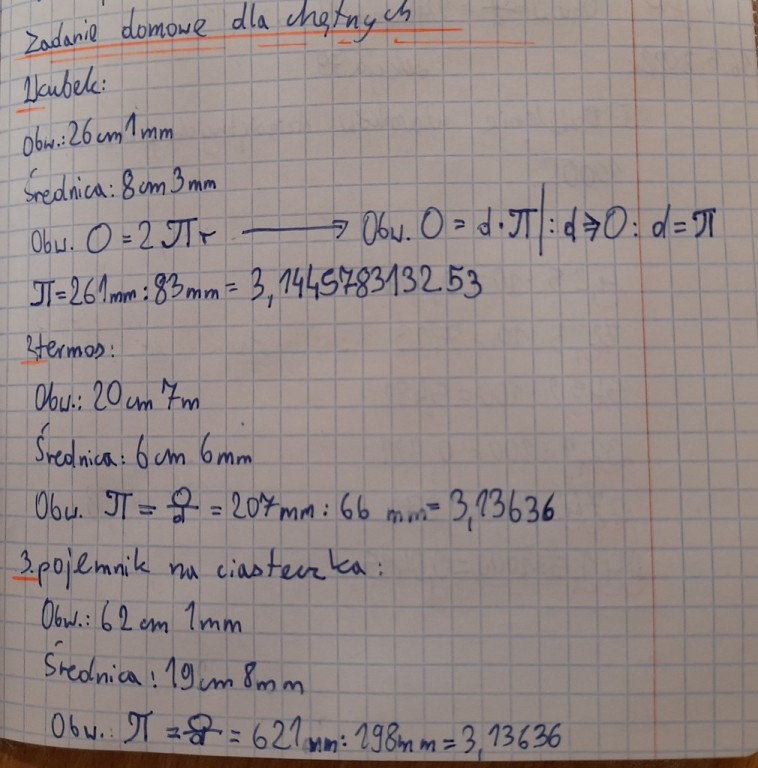 Zadanie domowe dla chętnych
1)kubek:
Obw.: 26 cm 1 mm
Średnica: 8 cm 3 mm
Obw. O = 2 πr → Obw. O = d · π | : d ⇒ O : d = π
π = 261 mm : 83 mm = 3,144578313253
2)termos:
Obw.: 20 cm 7 m
Średnica: 6 cm 6 mm
Obw. π = O/d = 207 mm : 66 mm = 3,13636
3.pojemnik na ciasteczka:
Obw.: 62 cm 1 mm
Średnica: 19 cm 8 mm
Obw.: π = O/d = 621 mm : 198 mm = 3,13636